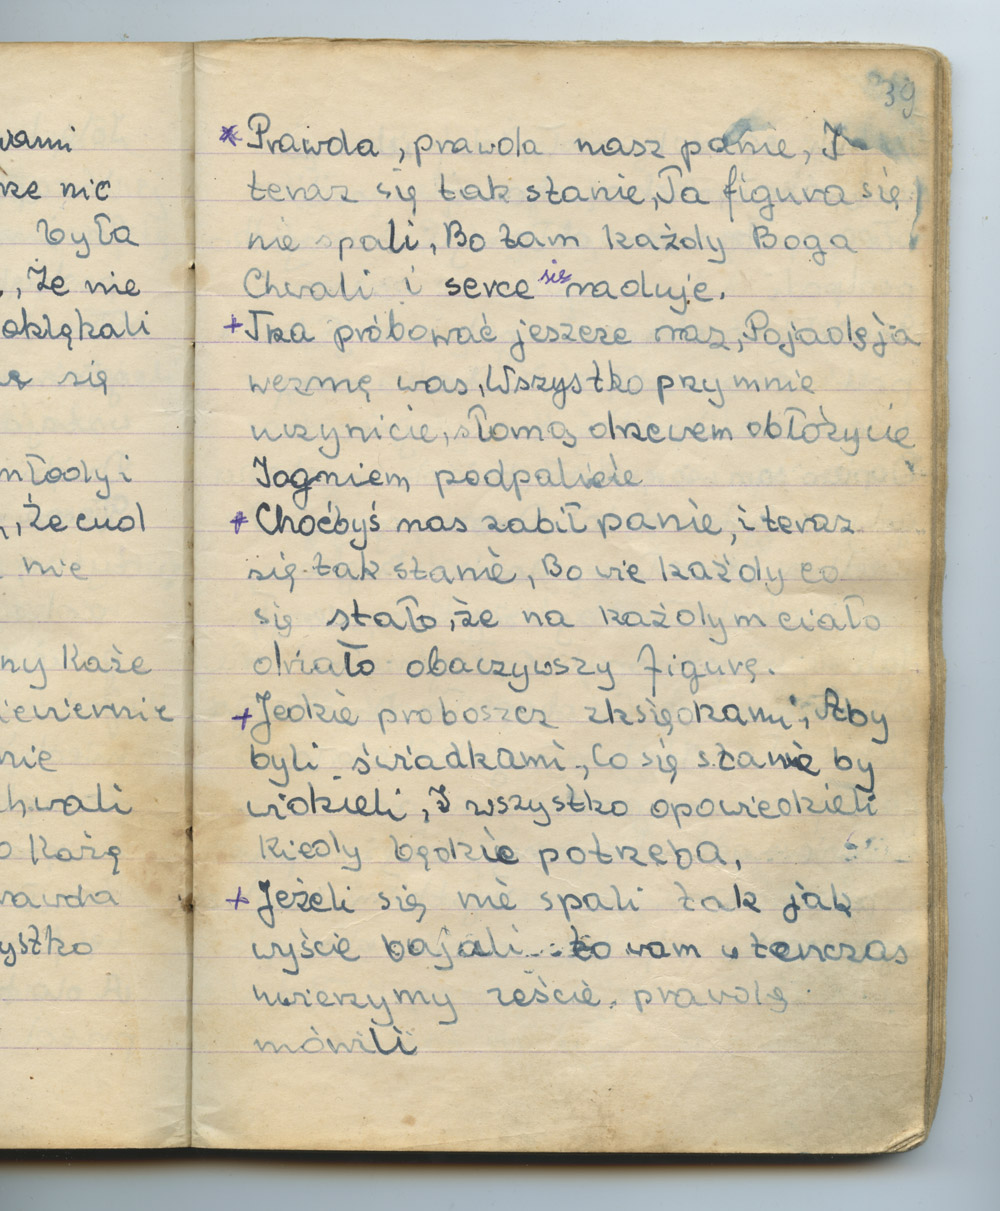 wami
rze nic
była
, Że nie
oklękali
się
młody i
, Że cud
nie
ny Każe
niewiernie
nie
chwali
o Każę
rawda
ystko
39
* Prawda, prawda nasz panie, I
teraz się tak stanie, Ta figura się
nie spali, Bo tam każdy Boga
Chwali i serce się raduje.
+ Trza próbować jeszcze raz, Pojadę ja
wezmę was, Wszystko przymnie
uczynicie, słomą drzewem obłożycie
Iogniem podpalicie
+ Choćbyś nas zabił panie, i teraz
się tak stanie, Bo wie każdy co
się stało, że na każdym ciało
drżało obaczywszy figurę.
+ Jedzie proboszcz zksiędzami, Aby
byli świadkami, Co się stanie by
widzieli, I wszystko opowiedzieli
Kiedy będzie potrzeba,
+ Jeżeli się nie spali tak jak
wyście bajali to wam w tenczas
uwierzymy żeście prawdę
mówili